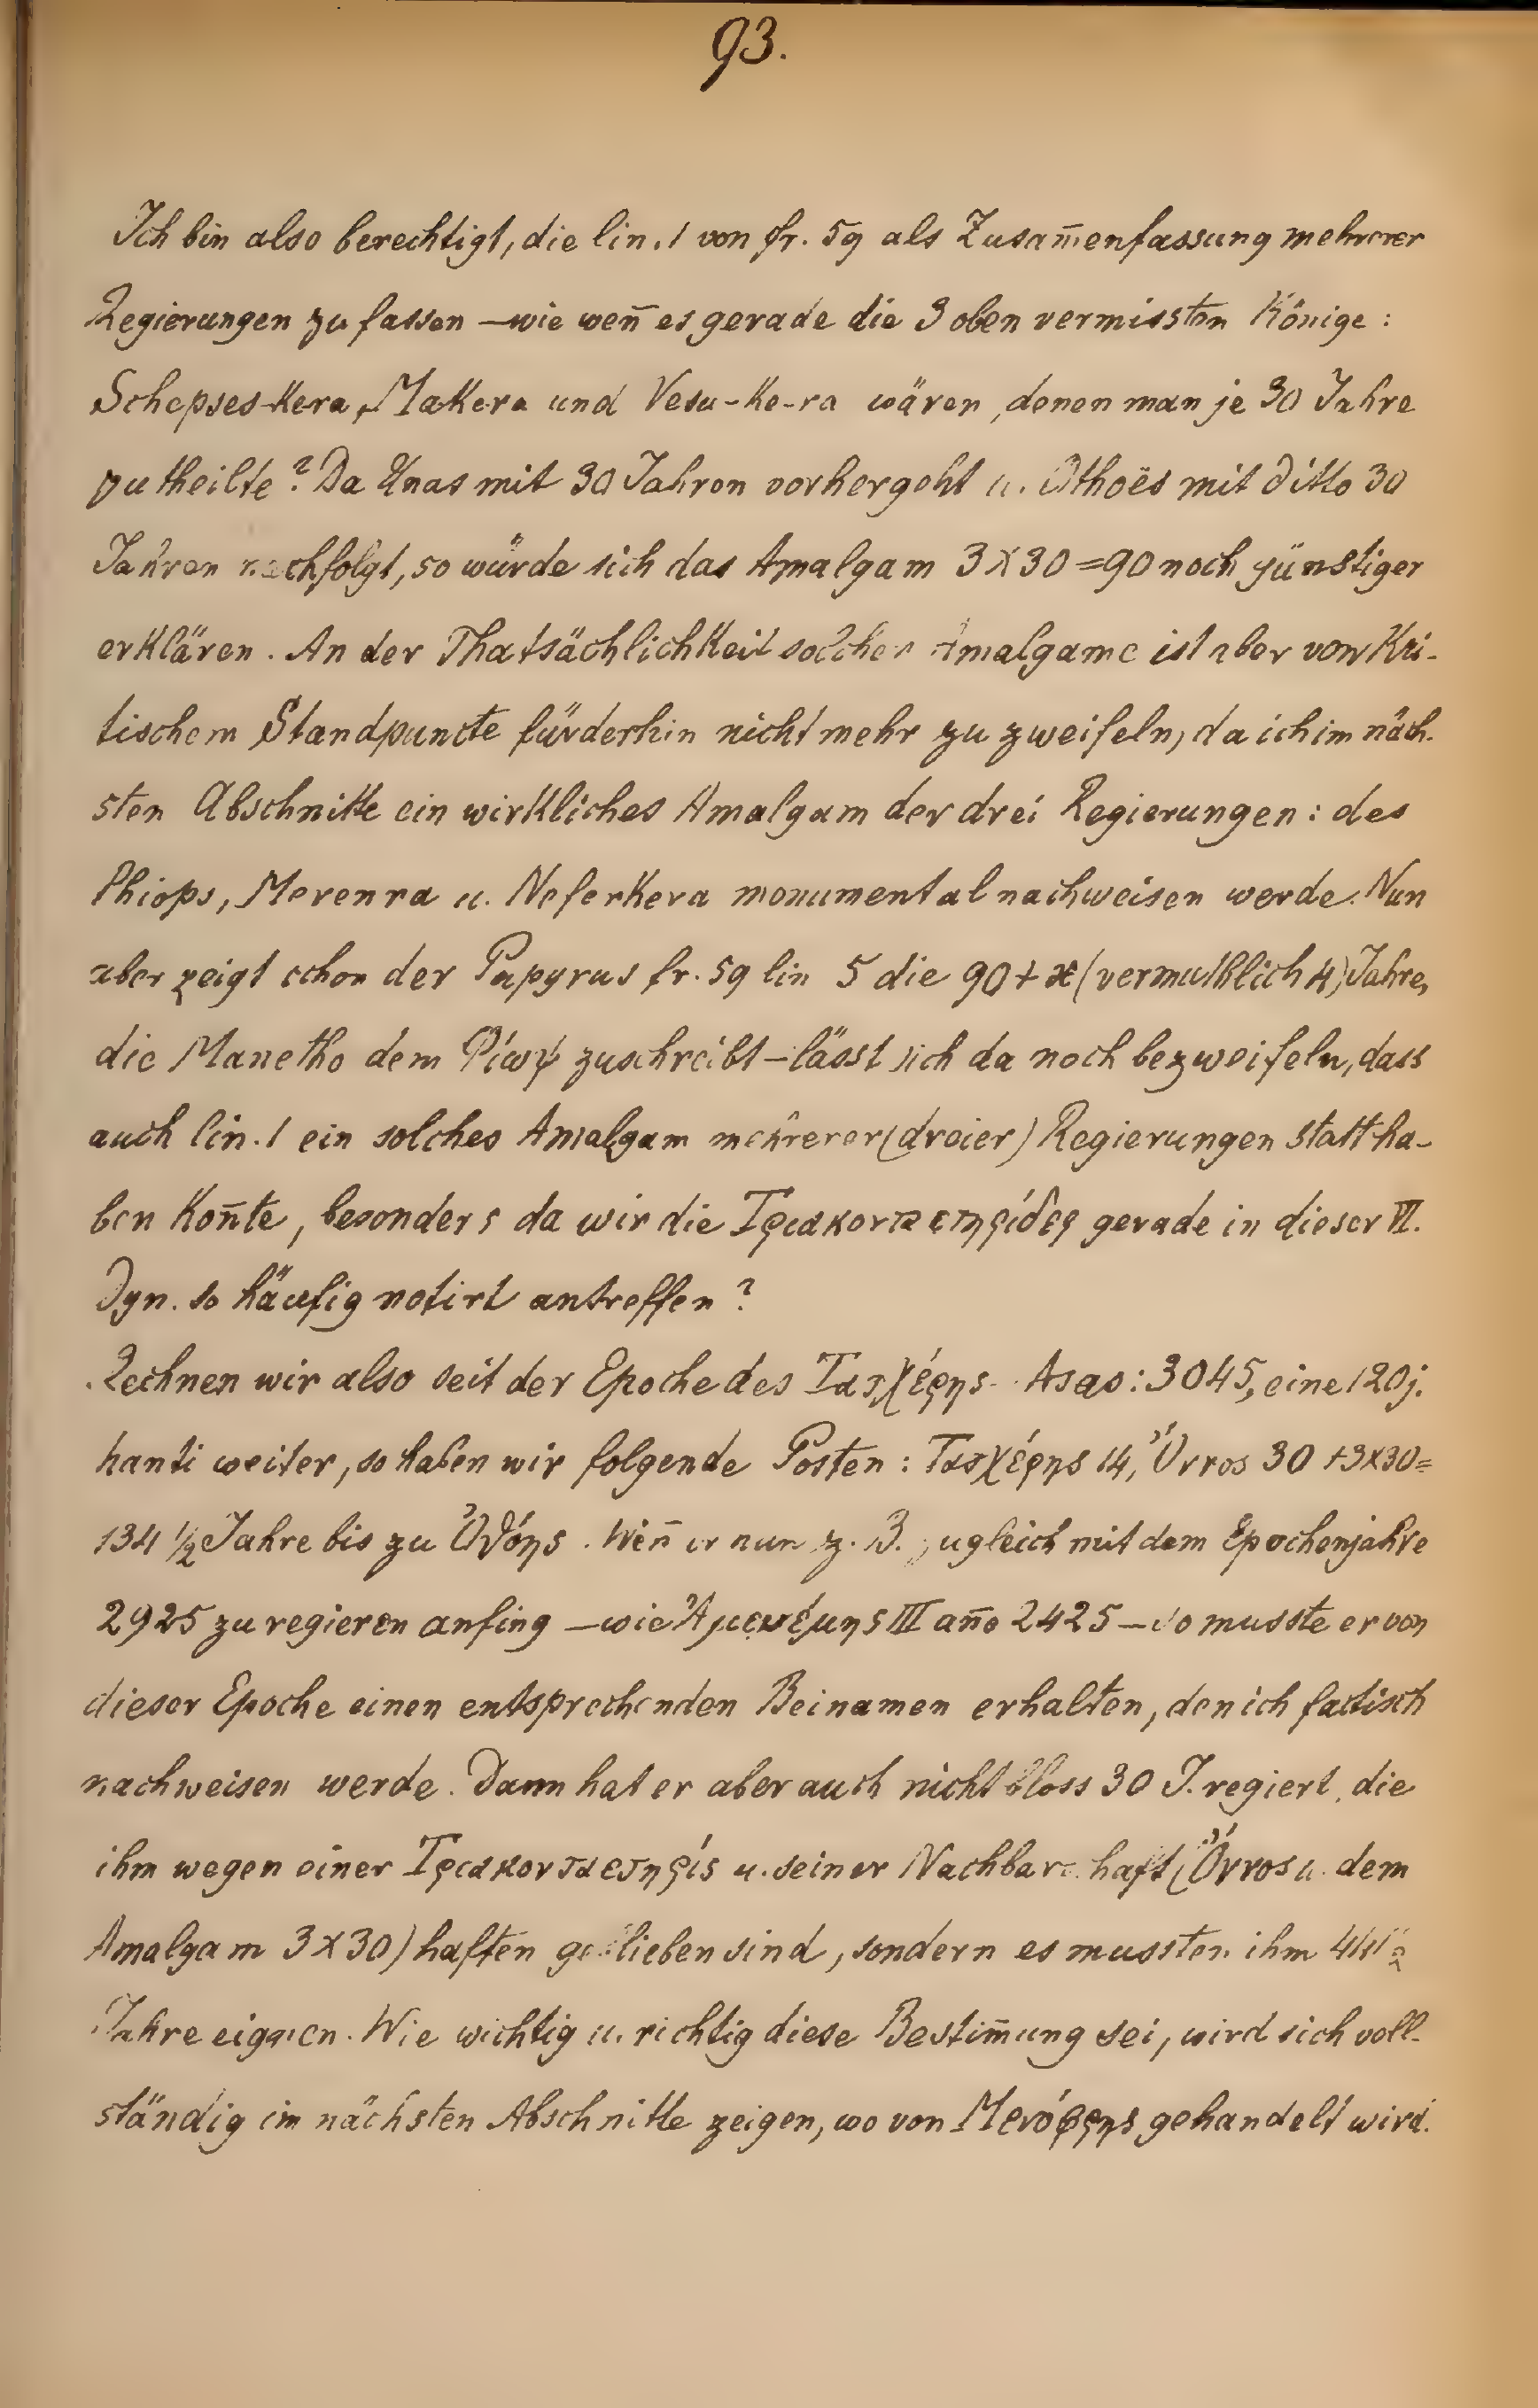 93.
Ich bin also berechtigt, die lin. 1 von fr. 59 als Zusam̄enfassung mehrerer
Regierungen zu fassen – wie wen̄ es gerade die 3 oben vermissten Könige:
Schepses-Kera, Makera und Vesu-Ke-ra wären, denen man je 30 Jahre
zutheilte? Da Unas mit 30 Jahren vorhergeht u. Othoës mit ditto 30
Jahren nachfolgt, so würde sich das Amalgam 3×30=90 noch günstiger
erklären. An der Thatsächlichkeit solcher Amalgame ist aber vom kri-
tischem Standpuncte fürderhin nicht mehr zu zweifeln, da ich im näch-
sten Abschnitte ein wirkliches Amalgam der drei Regierungen: des
Phiops, Merenra u. Neferkera monumental nachweisen werde. Nun
aber zeigt schon der Papyrus fr. 59 lin 5 die 90+x (vermuthlich 4) Jahre,
die Manetho dem Φίωψ zuschreibt – lässt sich da noch bezweifeln, dass
auch lin. 1 ein solches Amalgam mehrerer (dreier) Regierungen statt ha-
ben kon̄te, besonders da wir die Τριακονταετηρίδες gerade in dieser VI.
Dyn. so häufig notirt antreffen?
Rechnen wir also seit der Epoche des Τατχέρης- Asas: 3045, eine 120j.
hanti weiter, so haben wir folgende Posten: Τατχέρης 14, Ὄννος 30 +3×30=
134 1/2 Jahre bis zu Ὀθόης. Wen̄ er nun z. B. zugleich mit dem Epochenjahre
2925 zu regieren anfing – wie Ἀμενέμης III an̄o 2425 – so musste er von
dieser Epoche einen entsprechenden Beinamen erhalten, den ich factisch
nachweisen werde. Dann hat er aber auch nicht bloss 30 J. regiert, die
ihm wegen einer Τριακονταετηρίς u. seiner Nachbarschaft (Ὄννος u. dem
Amalgam 3×30) haften geblieben sind, sondern es mussten ihm 44 1/2
Jahre eignen. Wie wichtig u. richtig diese Bestim̄ung sei, wird sich voll-
ständig im nächsten Abschnitte zeigen, wo von Μενόφρης gehandelt wird.